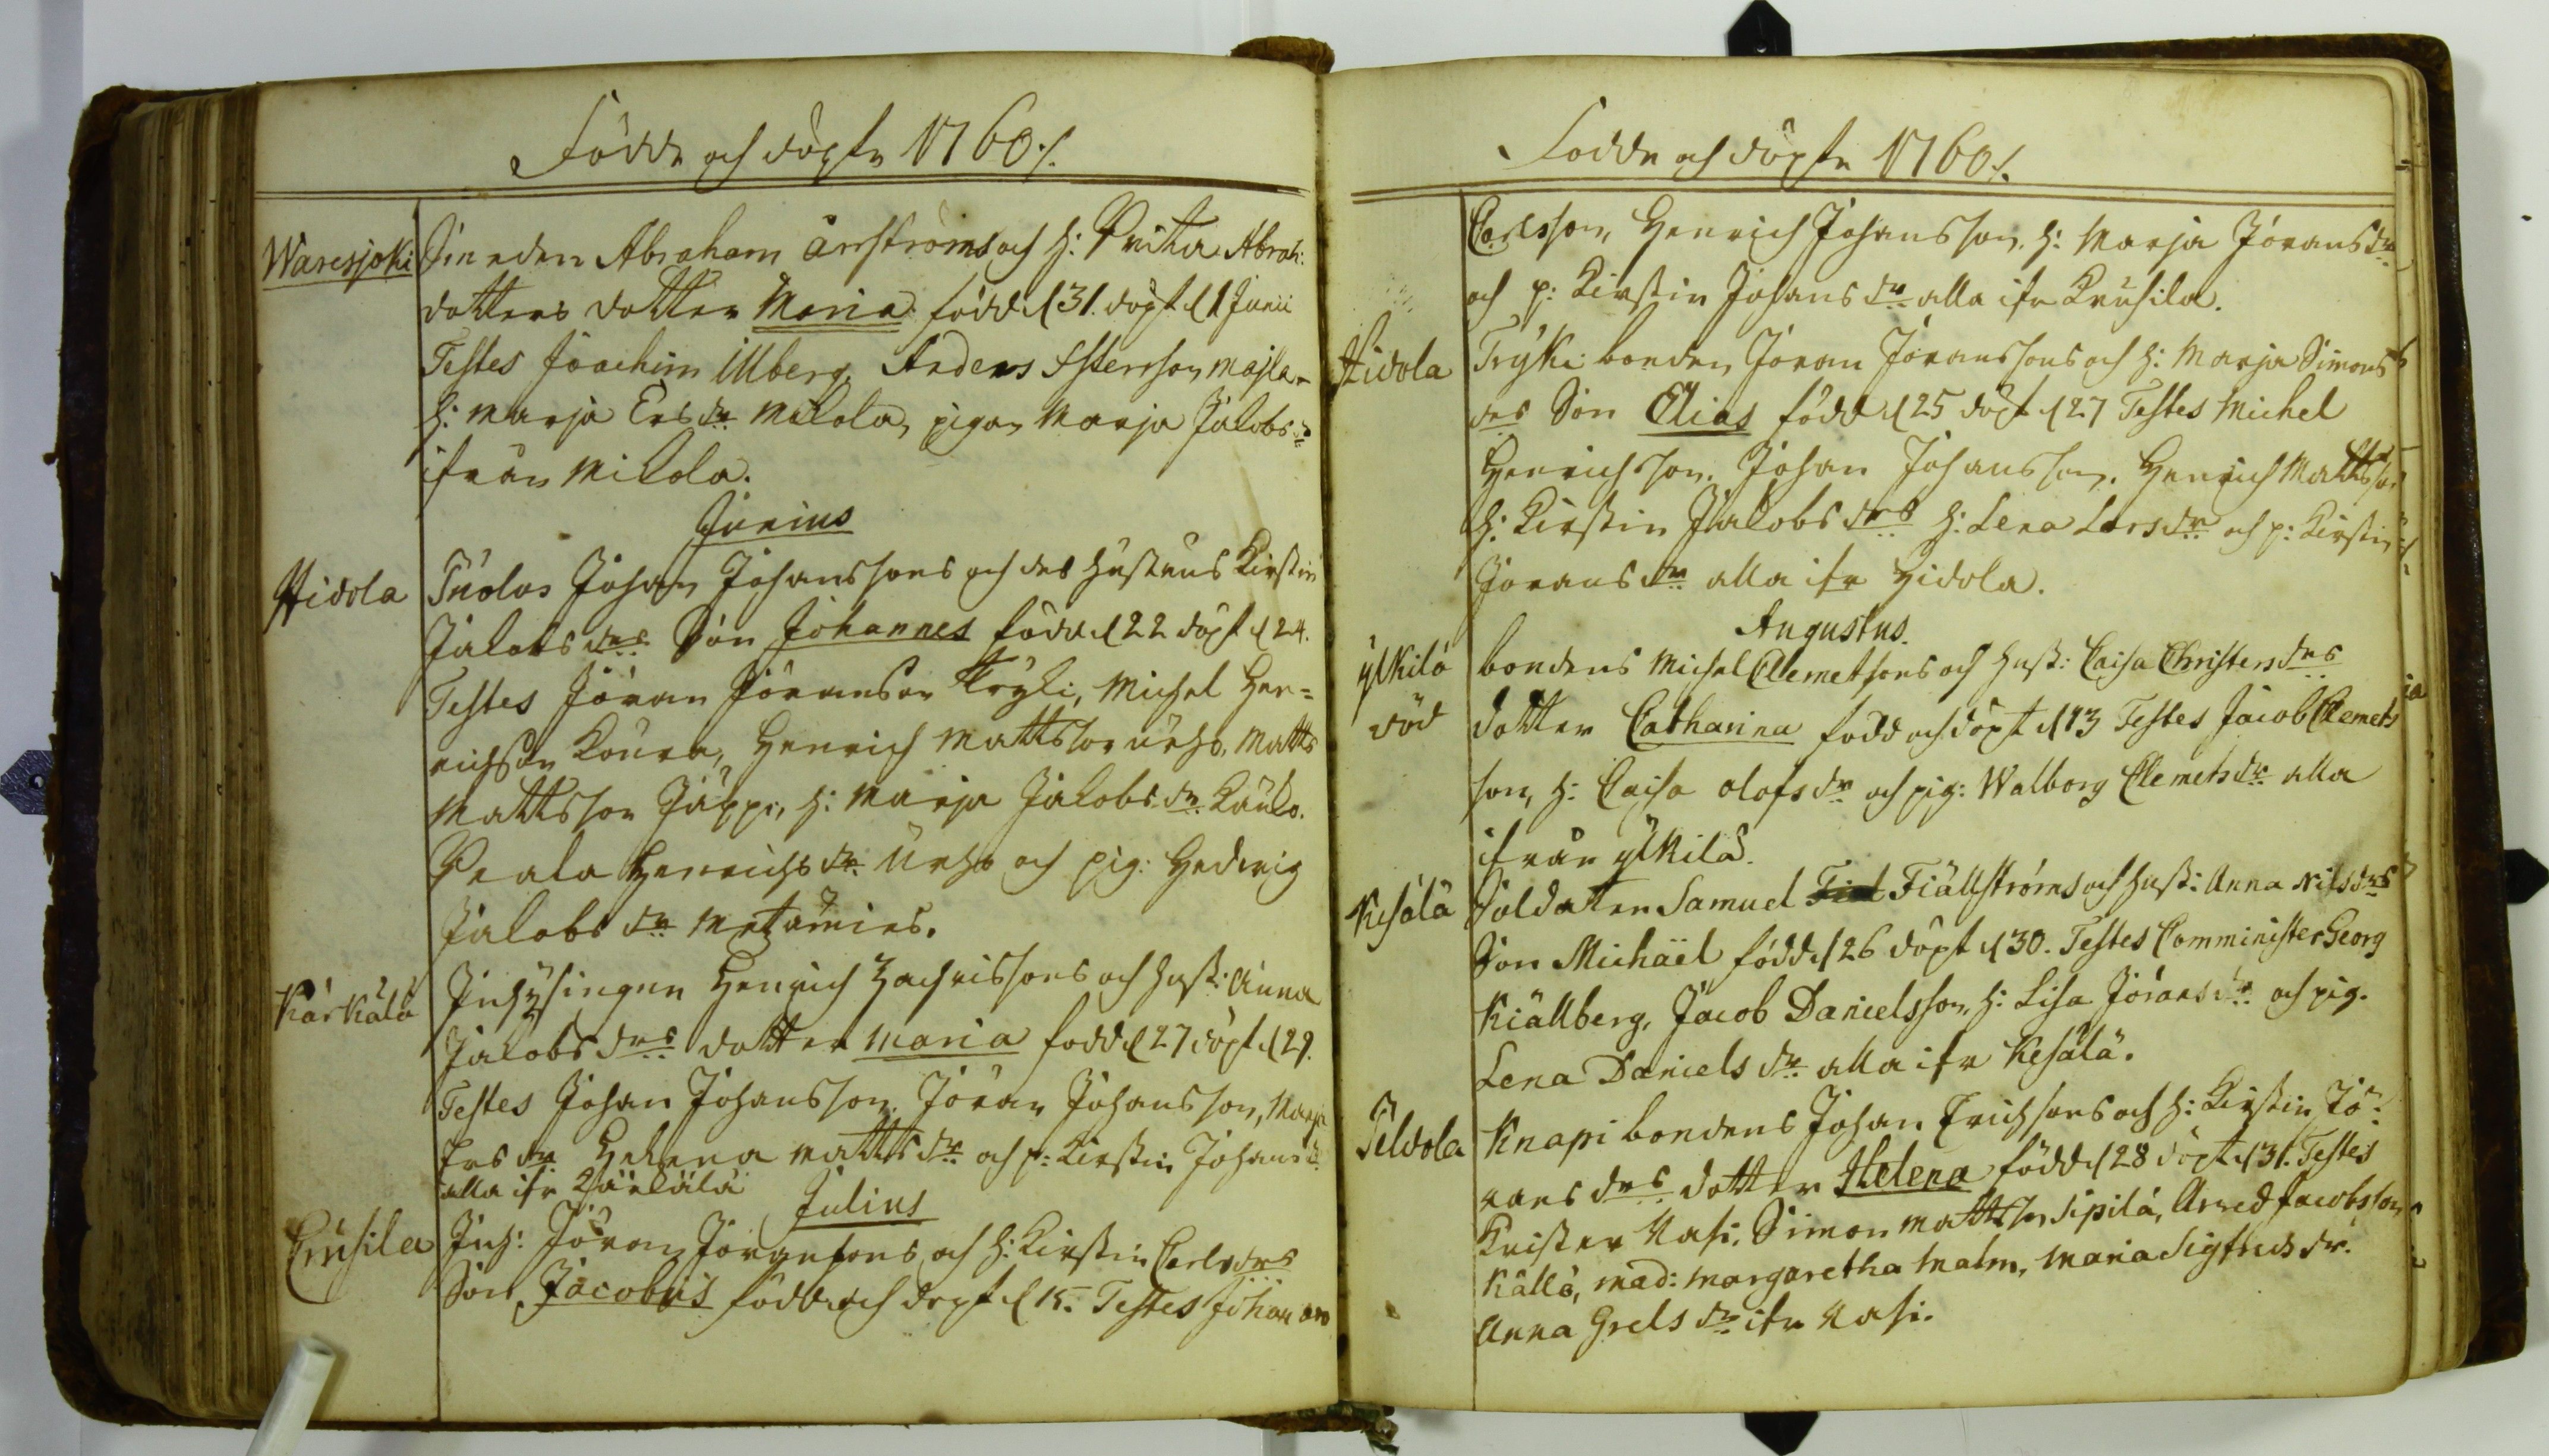 Födde och döpte 1760./.
Waresjoki Smeden Abraham Örnströms och h: Brita Abrah:
dotters dotter Maria född d 31. döpt d 1 Junii
Testes Joachim Illberg, Anders
h: Marja Ers dr Mikola, pigan Marja Jakobs dr
ifrån Mikola.
Junius
Hidola Johan Johanssons och des hustrus Kirstin
Jakobs drs Son Johannes född d 22 döpt d 24.
Testes Jöran Jöransson Tryki, Michel Hen=
richson Koura, Henrich Mattsson Urho, Matts
Mattsson Jäppi, h: Marja Jakobs dr
Beata Henrichs dr Urho och pig: Hedvig
Jakobs dr Metämies.
Kärkälä Inhysingen Henrich Zachrissons och hust: Anna
Jakobs drs dotter Maria född d 27 döpt d 29.
Testes Johan Johansson, Jöran Johansson, Marja
Ers dr Helena Matts dr och p: Kirstin Johans dr
alla ifr Kärkälä
Julius
Crusila Inh: Jöran Jöranssons och h: Kirstin Carls drs
Son Jacobus född och döpt d 15. Testes Johan
Födde och döpte 1760./.
Carlsson, Henrich Johansson, h: Marja Jörans dr
och p: Kirstin Johans dr alla ifr Krusila.
Hidola Tryki bonden Jöran Jöranssons och h: Marja Simons
drs Son Elias född d 25 döpt d 27 Testes Michel
Henrichsson, Johan Johansson, Henrich Mattsson
h: Kirstin Jakobs drs h: Lena Lars dr och p: Kirstin
Jörans dr alla ifr Hidola.
Augustus.
ylkilä bondens Michel Clemetsons och hust: Caisa Christers drs
död dotter Catharina född och döpt d 13 Testes Jacob Clemets
son, h: Caisa Olofs dr och pig: Walborg Clemets dr alla
ifrån ylkilä.
Kesälä Soldaten Samuel Fiällströms och hust: Anna Nils drs
Son Michaël född d 26 döpt d 30. Testes Comminister Georg
Kiällberg, Jacob Danielsson, h: Lisa Jörans dr och pig.
Lena Daniels dr alla ifr Kesälä.
Peldola Knapi bondens Johan Erichsons och h: Kirstin Jö=
rans drs dotter Helena född d 28 döpt d 31. Testes
Krister Uasi, Simon Mattsson Sipilä, Arved Jacobsson
Källö, Mad: Margaretha Malm, Maria Sigfreds dr.
Anna Grels dr ifr Uasi.